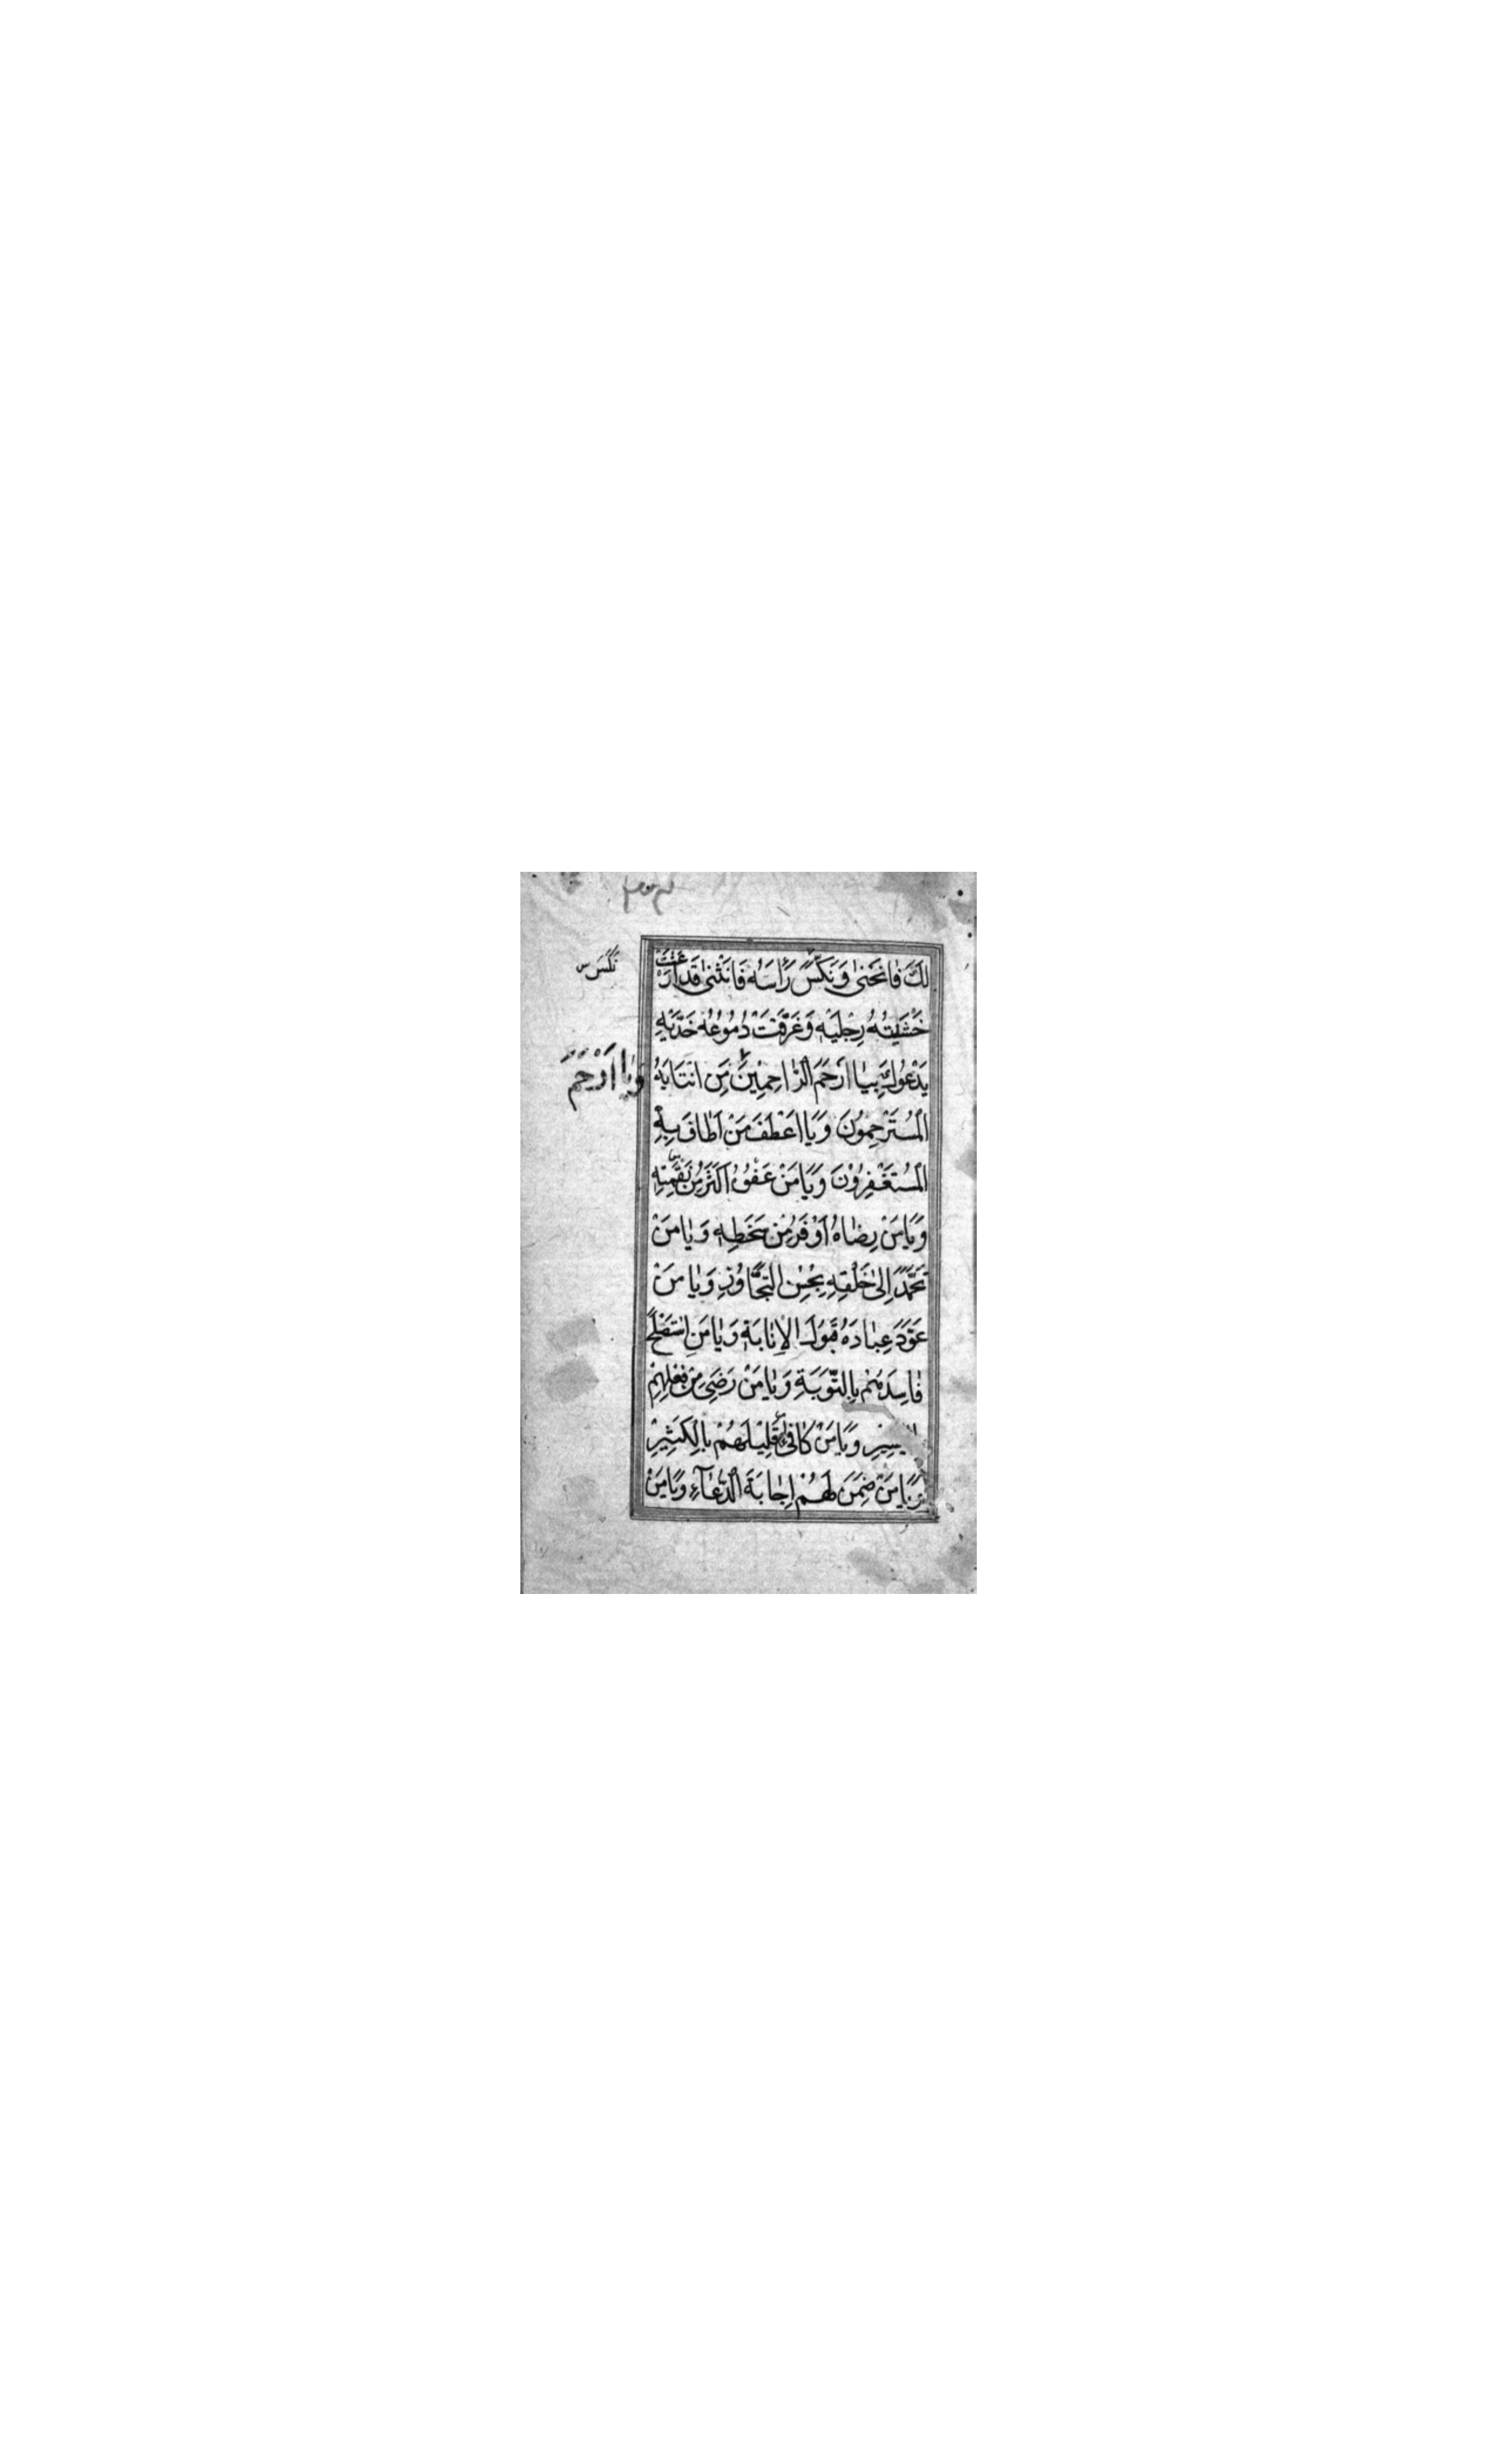 لَكَ فَانْحَنىٰ وَنَكَّسَ رَأْسَهُ فَانْثَنىٰ قَدْ اَرْعَشَتْ
خَشْيَتُهُ رِجْلَيْهِ وَغَرَّقَتْ دُمُوعُهُ خَدَّيْهِ
يَدْعُوكَ بِيَا اَرْحَمَ الرَّاحِمِيْنَ مَنِ انْتَابَهُ
وَيَا اَرْحَمَ
الْمُسْتَرْحِمُونَ وَيَا اَعْطَفَ مَنْ اَطَافَ بِهِ
الْمُسْتَغْفِرُوْنَ وَيَا مَنْ عَفْوُهُ اَكْثَرُ مِنْ نَقِمَتِهِ
وَيَا مَنْ رِضَاهُ اَوْفَرُ مِنْ سَخَطِهِ وَيَا مَنْ
تَحَمَّدَ اِلىٰ خَلْقِهِ بِحُسْنِ التَّجَاوُزِ وَيَا مَنْ
عَوَّدَ عِبَادَهُ قَبُولَ الْاِنَابَةِ وَيَا مَنِ اسْتَصْلَحَ
فَاسِدَهُمْ بِالتَّوْبَةِ وَيَا مَنْ رَضِيَ مِنْ فِعْلِهِمْ
بِالْيَسِيْرِ وَيَا مَنْ كَافىٰ قَلِيْلَهُمْ بِالْكَثِيْرِ
وَيَا مَنْ ضَمِنَ لَهُمْ اِجَابَةَ الدُّعَآءِ وَيَا مَنْ
نَكَسَ س